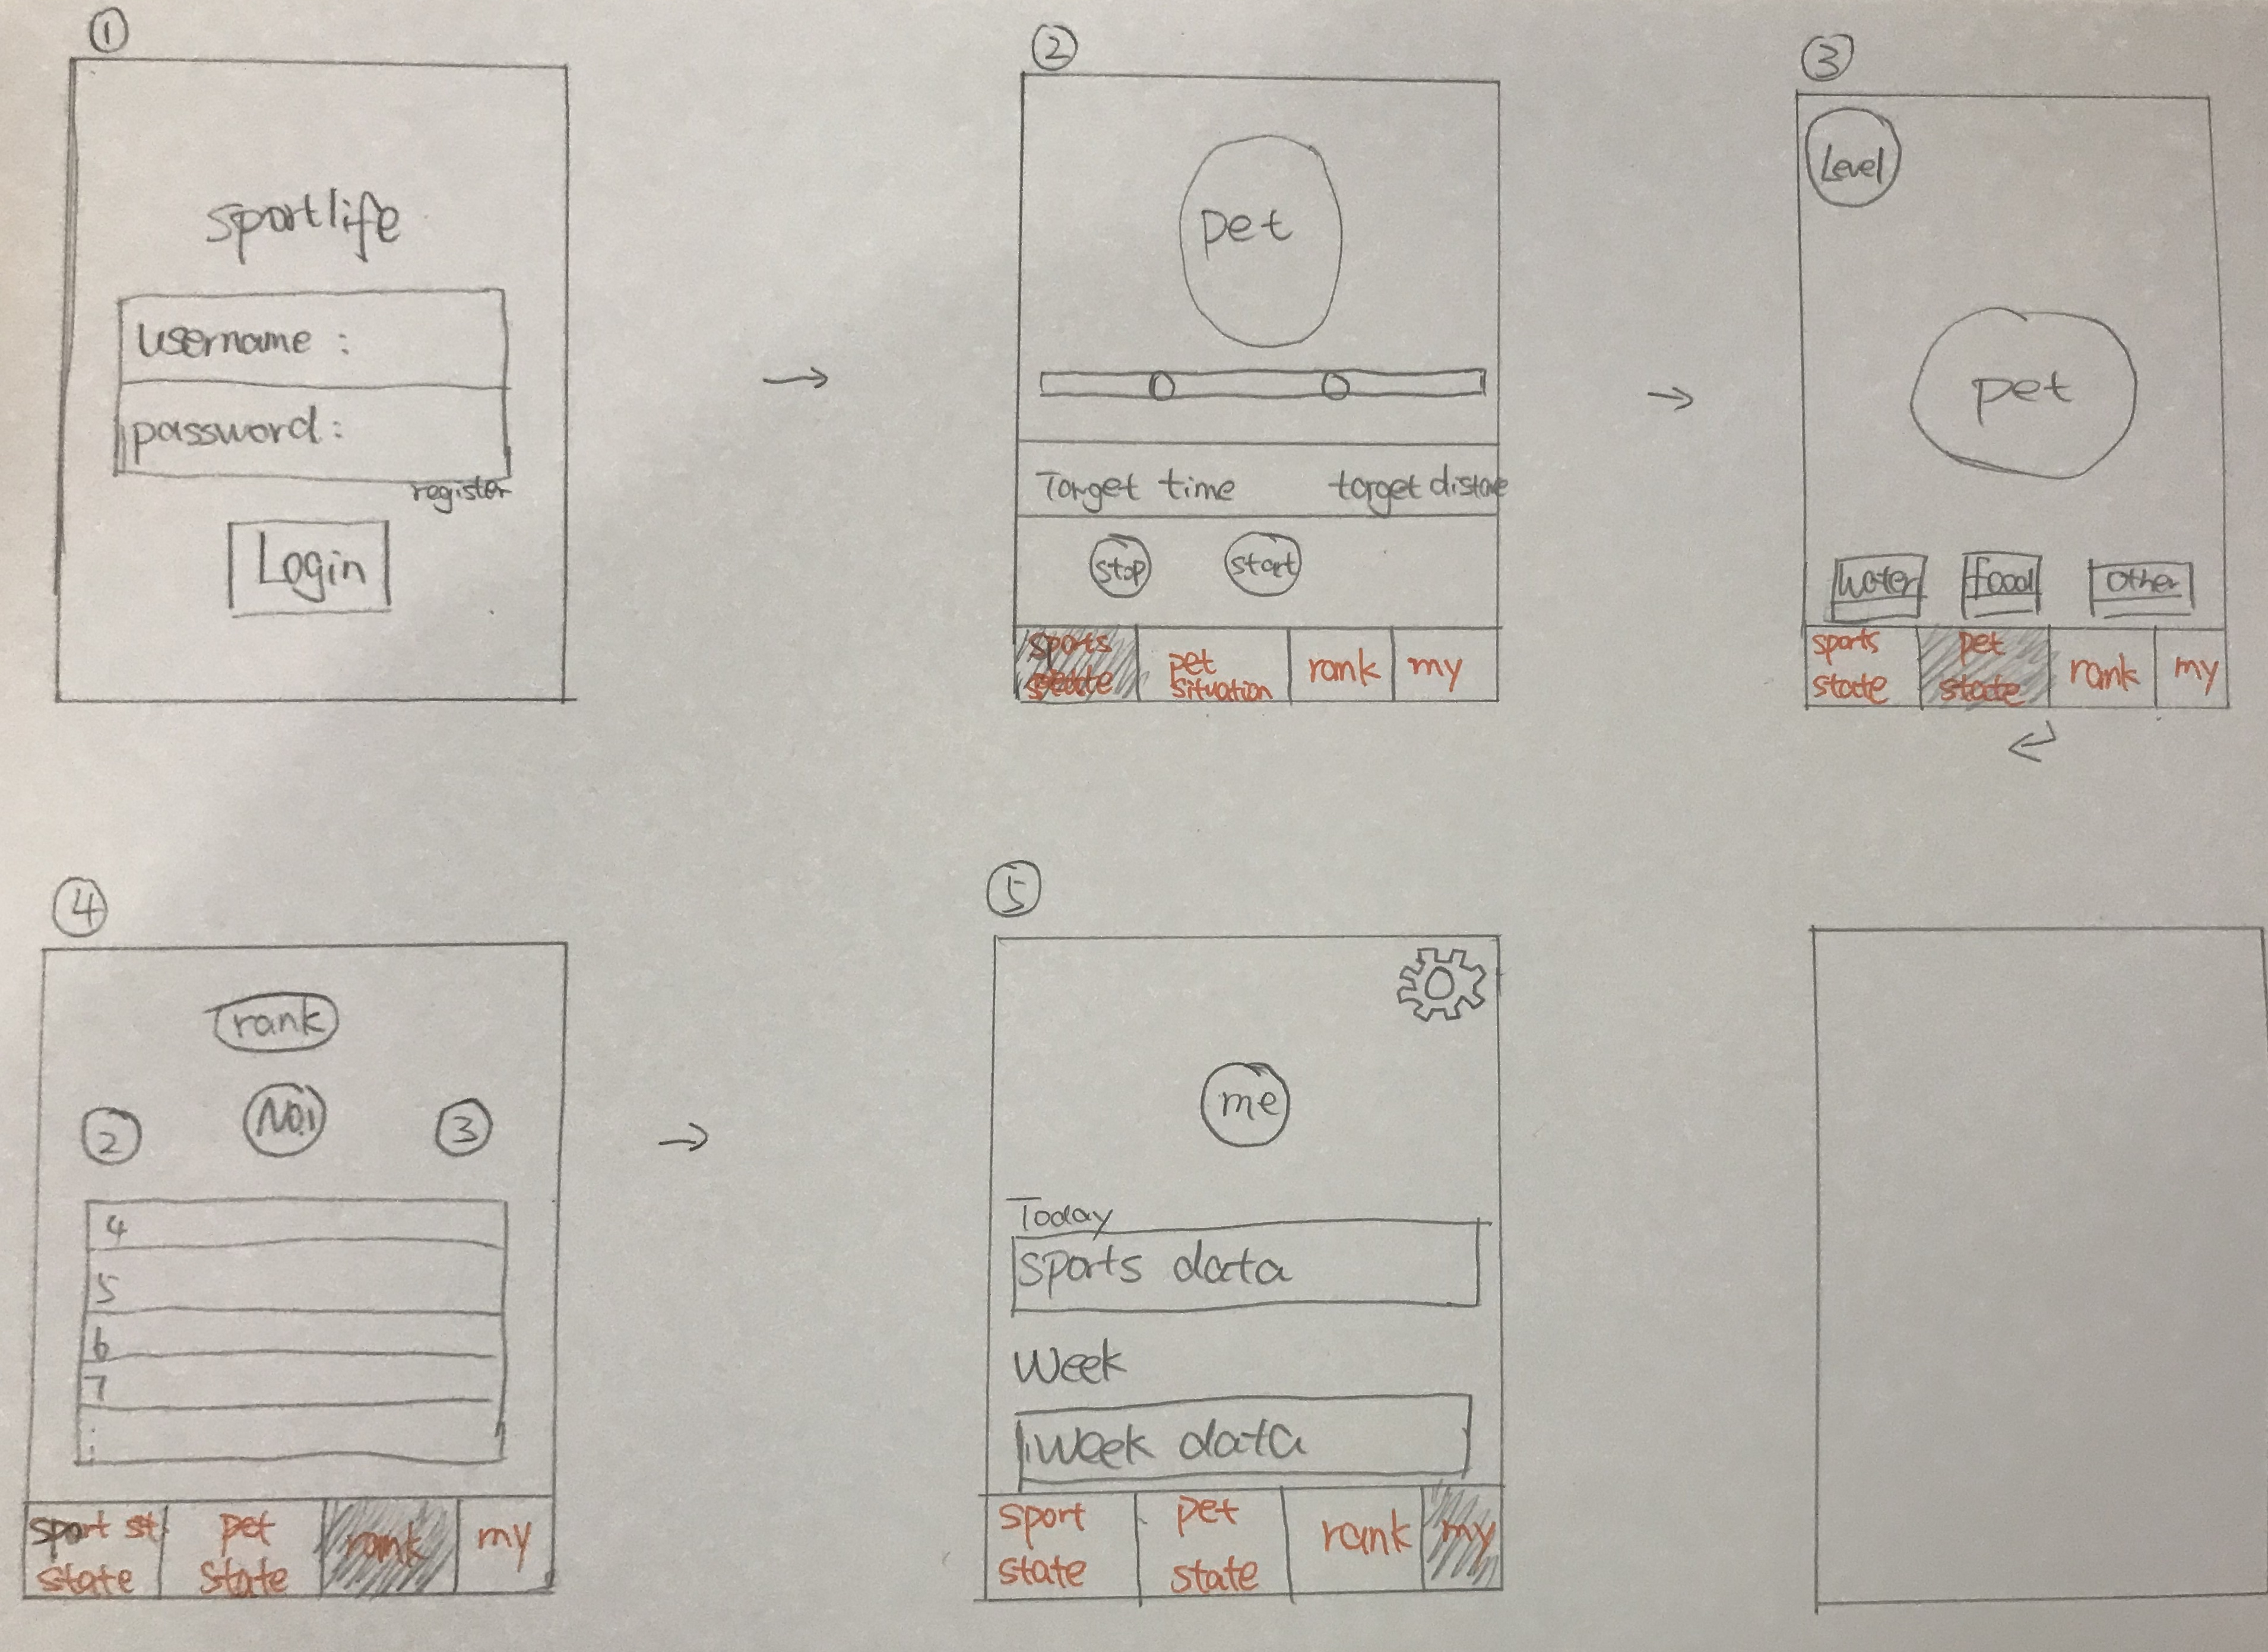 1
sportlife
username :
password :
register
Login
2
pet
Target time target
stop start
sports
pet situation rank my
3
Level
pet
water food other
sports state pet state rank my
4
rank
2 No.1 3
4
5
6
7
sport st state pet state rank my
5
me
Today
sports data
Week
week data
sport state pet state rank my